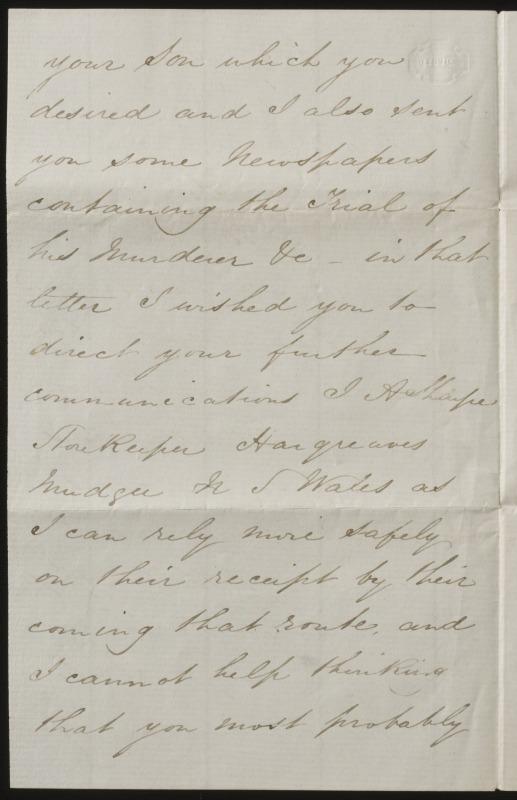 your Son which you
desired and I also sent
you some Newspapers
containing the Trial of
his Murderer &c - in that
letter I wished you to
direct your further
communications I A Sharpe
StoreKeeper Hargreaves
Mudgee N S Wales as
I can rely more safely
on their receipt by their
coming that route, and
I cannot help thinking
that you most probably